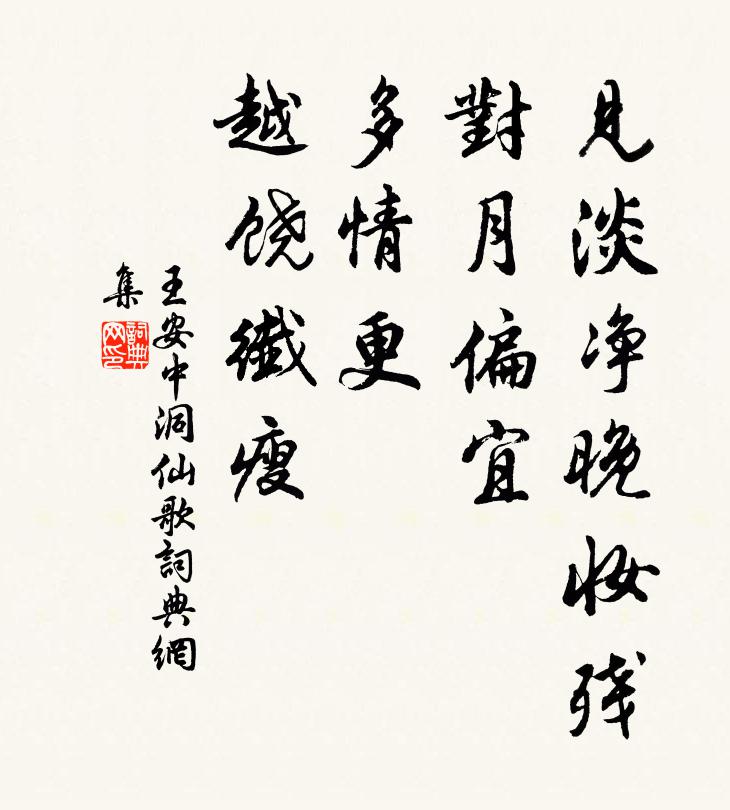 見淡净晚妆残
對月偏宜
多情更
越饶纖瘦
王安中洞仙歌詞典網
集
詞典网印